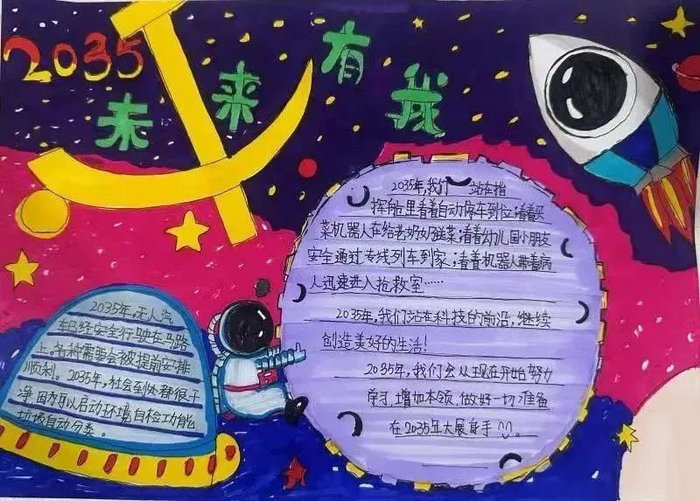 2035
未来有我
2035年,我们 站在指
挥舱里看着自动停车到位;看着买
菜机器人在给老奶奶送菜;看着幼儿园小朋友
安全通过专线列车到家;看着机器人带着病
人迅速进入抢救室……
2035年,我们站在科技的前沿,继续
创造美好的生活!
2035年,我们会从现在开始努力
学习,增加本领,做好一切准备
在2035年大展身手
2035年,无人驾
车已经安全行驶在马路
上,各种需要会被提前安排
顺利。2035年,社会到处都很干
净,因为可以启动环境自检功能
垃圾自动分类。